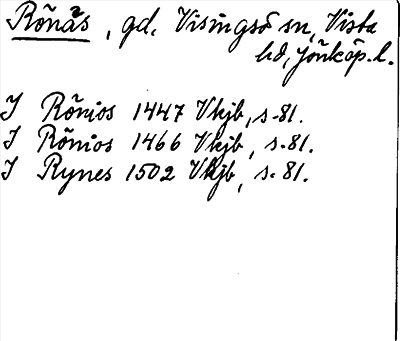 Rönås, gd, Visingsö sn, Vista
hd, Jönköp. l.
I Rönios 1447 Vkjb, s. 81.
I Rönios 1466 Vkjb, s. 81.
I Rynes 1502 Vkjb, s. 81.